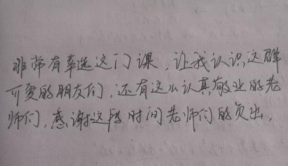 非常有幸选这门课，让我认识这群
可爱的朋友们，还有这么认真敬业的老
师们，感谢这段时间老师们的负出。